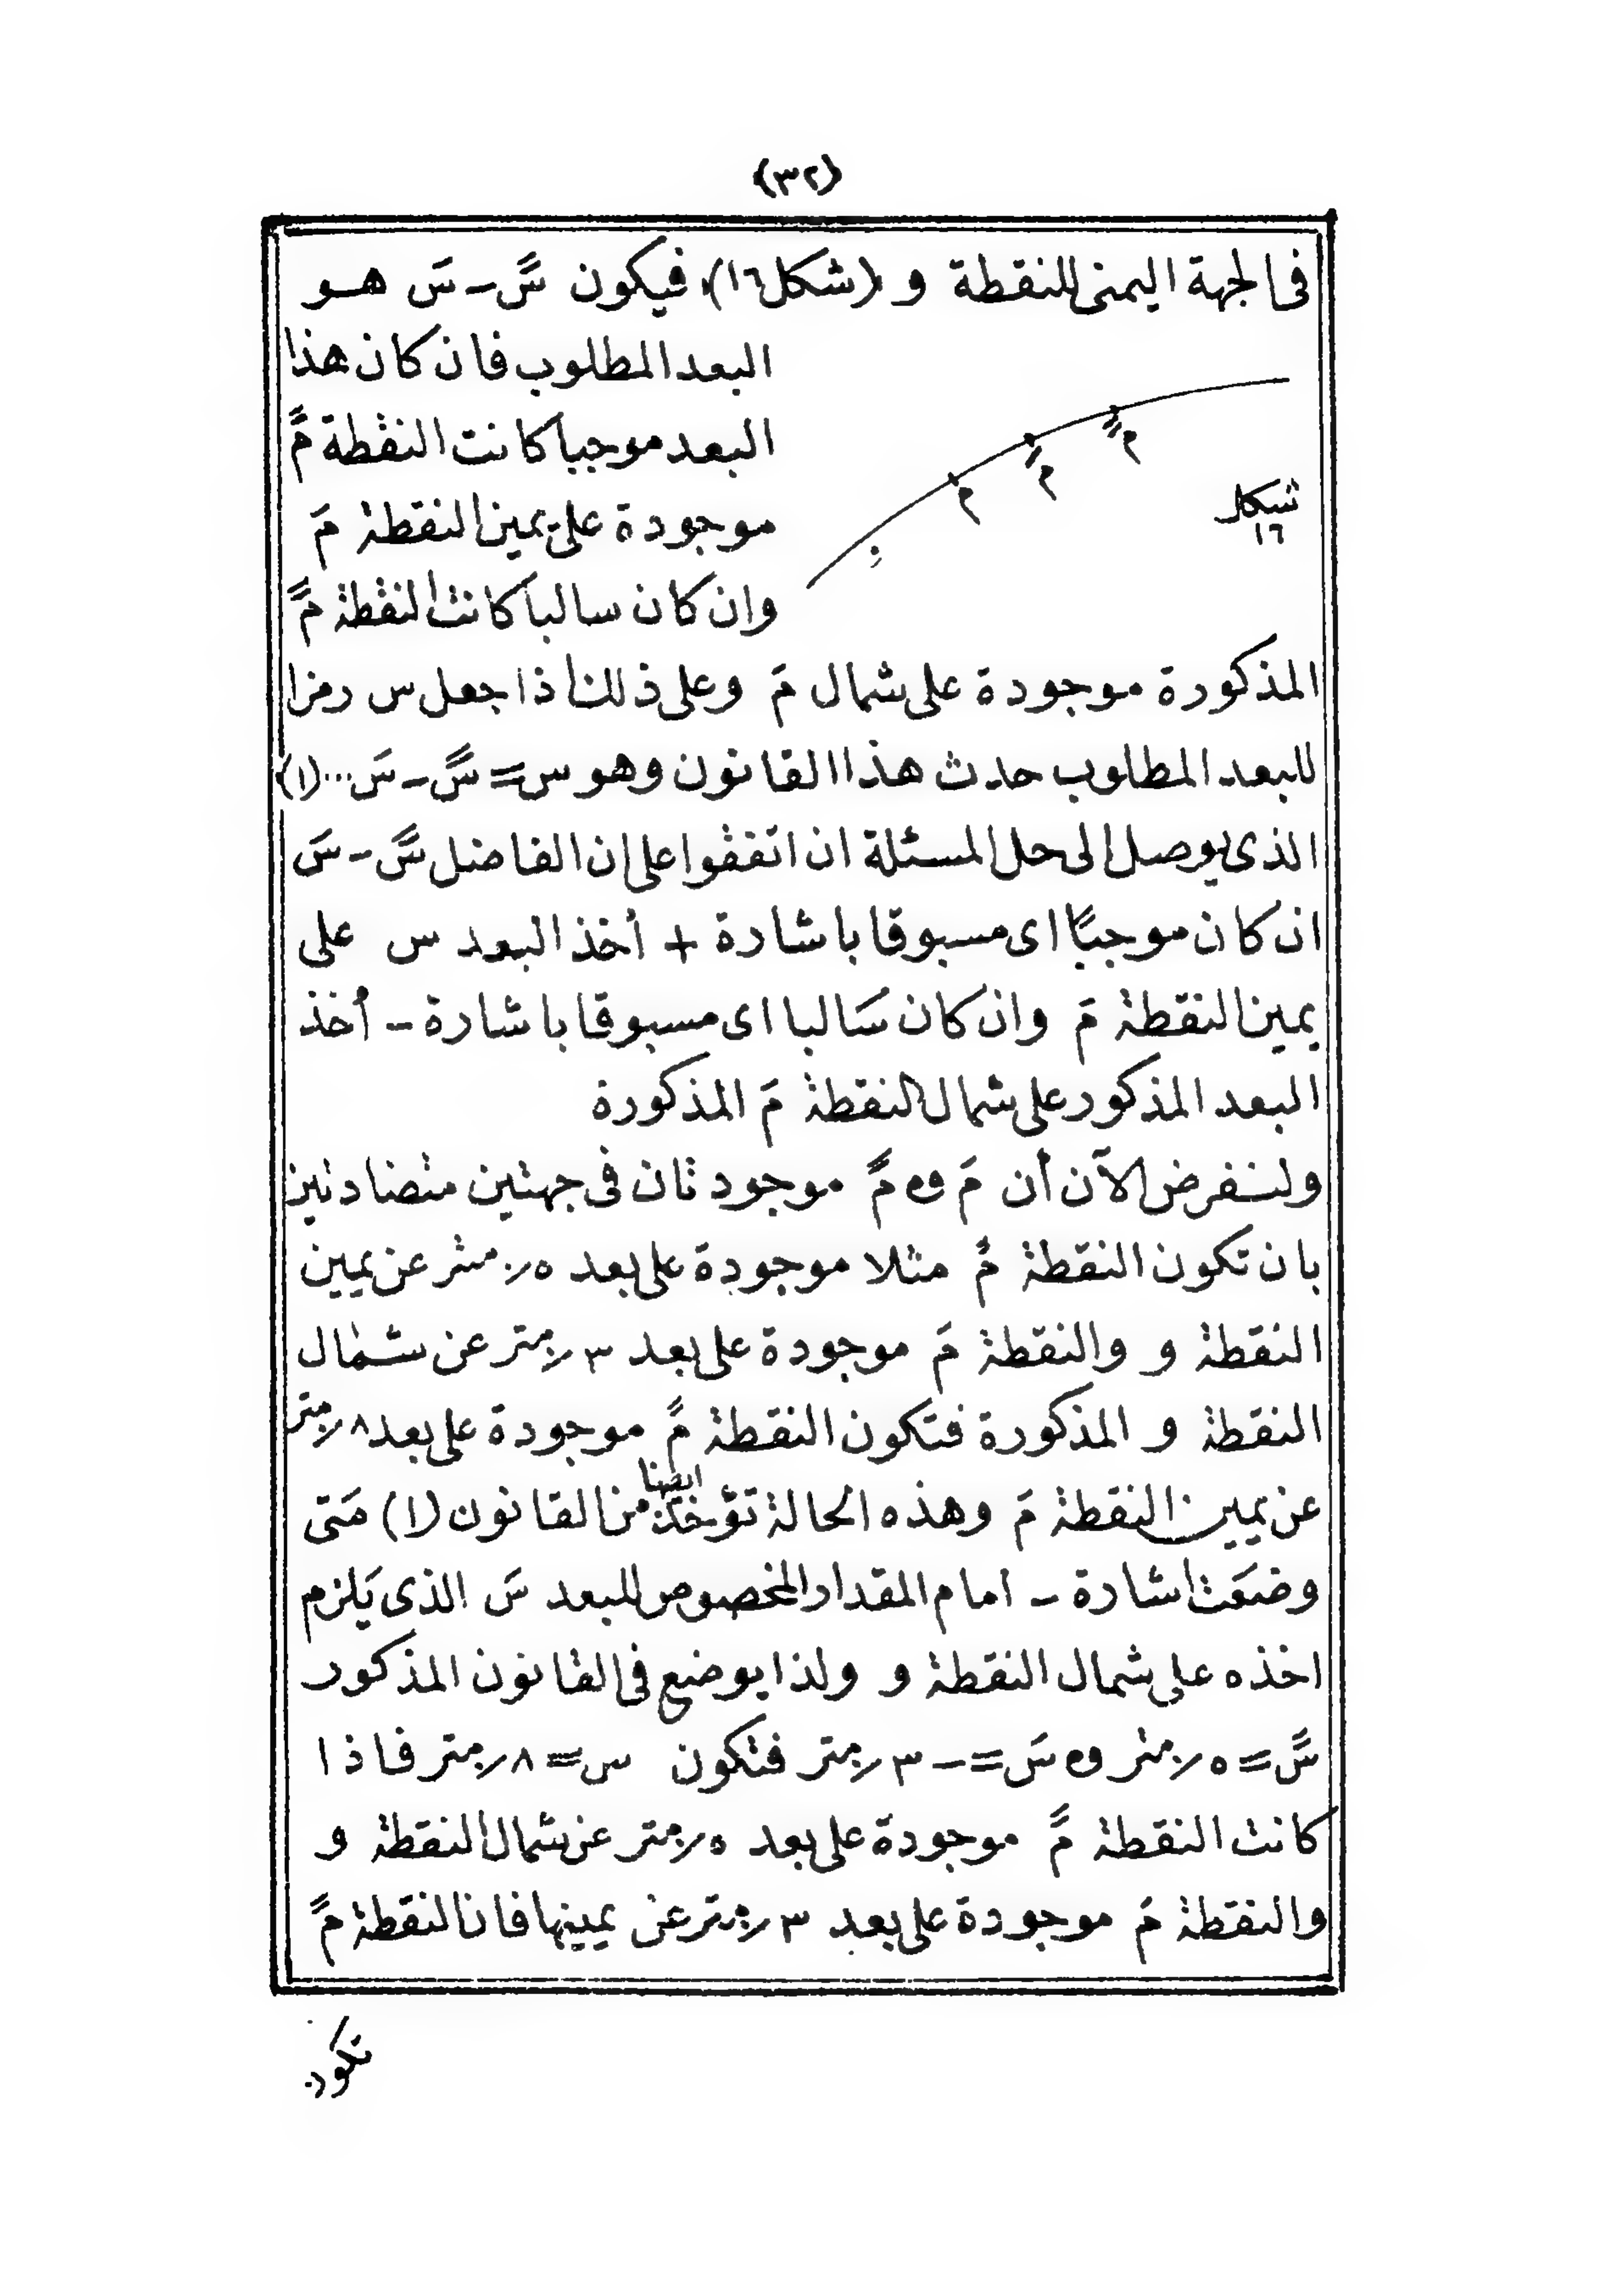 (٣٢)
فى الجهة اليمنى للنقطة و (شكل ١٦) فيكون سً - سَ هو
البعد المطلوب فان كان هذا
البعد موجبا كانت النقطة مً
موجودة على يمين النقطة مَ
وان كان سالبا كانت النقطة مً
شكل
١٦
م
م
م
المذكورة موجودة على شمال مَ وعلى ذلك اذا جعل س رمزا
للبعد المطلوب حدث هذا القانون وهو س = سً - سَ ... (١)
الذى يوصل الى حل المسئلة ان اتفقوا على ان الفاضل سً - سَ
ان كان موجبًا اى مسبوقا باشارة + أخذ البعد س على
يمين النقطة مَ وان كان سَالبا اى مسبوقا باشارة - أخذ
البعد المذكور على شمال النقطة مَ المذكورة
ولنفرض الآن أن مَ و مً موجودتان فى جهتين متضادتين
بان تكون النقطة مً مثلا موجودة على بعد ٥ر٠ متر عن يمين
النقطة و والنقطة مَ موجودة على بعد ٣ر٠ متر عن شمال
النقطة و المذكورة فتكون النقطة مً موجودة على بعد ٨ر٠ متر
عن يمين النقطة مَ وهذه الحالة تؤخذ ايضا من القانون (١) مَتى
وضعَت اشارة - امام المقدار المخصوص للبعد سَ الذى يَلزم
اخذه على شمال النقطة و ولذا يوضع فى القانون المذكور
سً = ٥ر٠ متر و سَ = - ٣ر٠ متر فتكون س = ٨ر٠ متر فاذا
كانت النقطة مً موجودة على بعد ٥ر٠ متر عن شمال النقطة و
والنقطة مَ موجودة على بعد ٣ر٠ متر عن يمينها فان النقطة مً
تكون